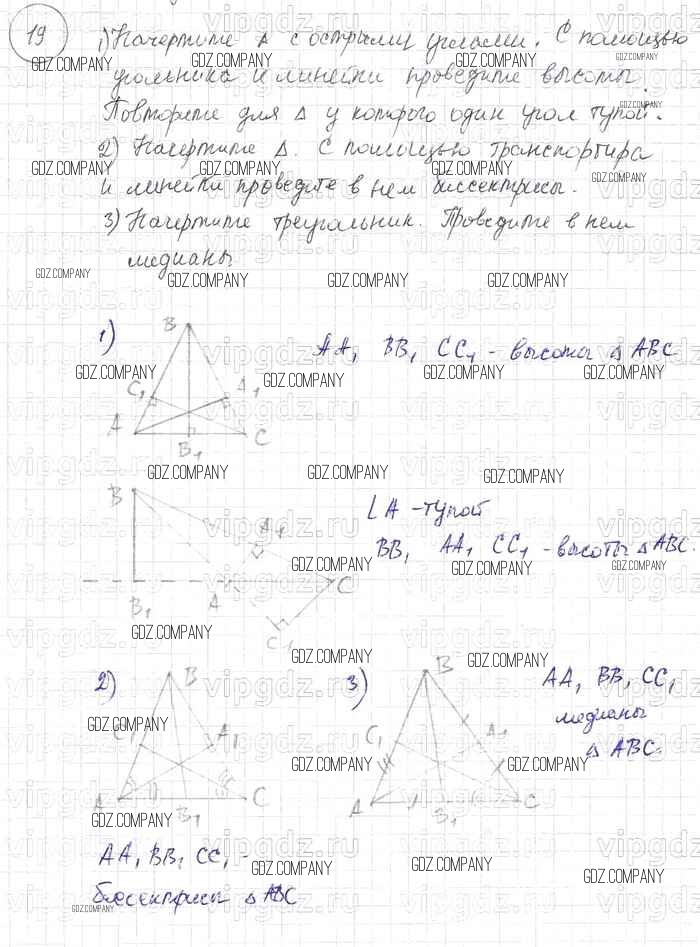 19
1) Начертите Δ с острыми углами. С помощью
угольника и линейки проведите высоты.
Повторите для Δ у которого один угол тупой.
2) Начертите Δ. С помощью транспортира
и линейки проведите в нем биссектрисы.
3) Начертите треугольник. Проведите в нем
медианы
1)
B
AA₁ BB₁ CC₁ - высоты Δ ABC
C₁ A₁
A B₁ C
B
∠A - тупой
A₁
BB₁ AA₁ CC₁ - высоты Δ ABC.
B₁ A C
C₁
2) B
3) B
AA₁ BB₁ CC₁
медианы
Δ ABC.
C₁ A₁
C₁ A₁
A B₁ C
A B₁ C
AA₁ BB₁ CC₁ -
биссектрисы Δ ABC
GDZ.COMPANY
vipgdz.ru